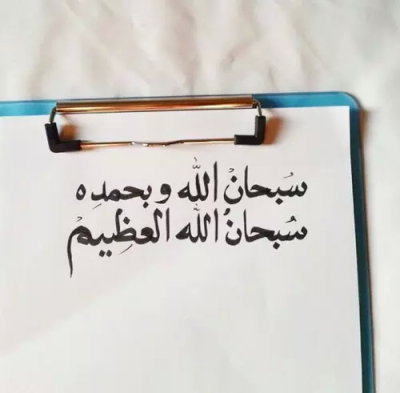 سبحان الله وبحمده
سُبحانُ الله العظيم